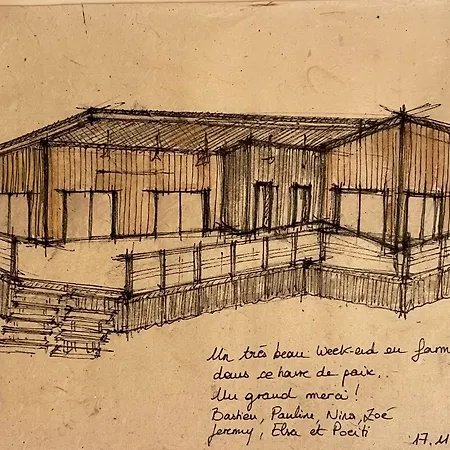 Un très beau week-end en fam
dans ce havre de paix..
Un grand merci !
Bastien, Pauline, Nina, Zoé
Jeremy, Elsa et
17.11